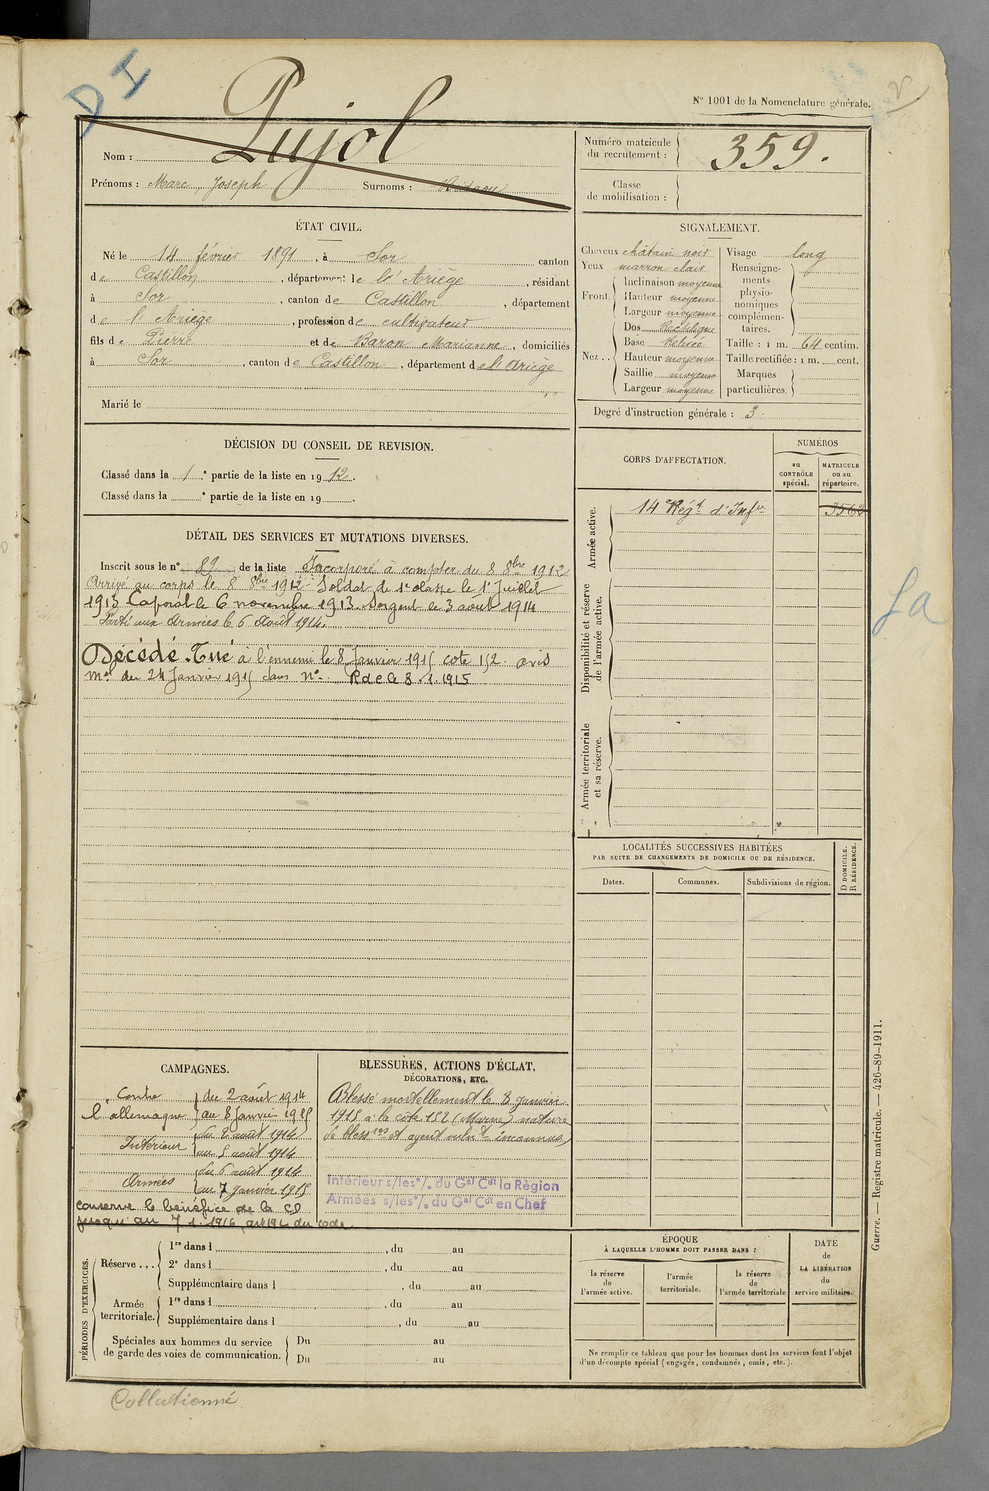 D I
N° 1001 de la Nomenclature générale.
Nom : Pujol
Prénoms : Marc, Joseph Surnoms :
Numéro matricule du recrutement : 359.
Classe de mobilisation :
ÉTAT CIVIL.
Né le 14 février 1891, à Sor canton
de Castillon, département de l'Ariège, résidant
à Sor, canton de Castillon, département
de l'Ariège, profession de cultivateur
fils de Pierre et de Baron Marianne, domiciliés
à Sor, canton de Castillon, département de l'Ariège
Marié le
SIGNALEMENT.
Cheveux châtain noir
Yeux marron clair
Front. Inclinaison moyenne
Hauteur moyenne
Largeur moyenne
Nez. Dos Rectiligne
Base Relevée
Hauteur moyenne
Saillie moyenne
Largeur moyenne
Visage long
Renseignements physionomiques complémentaires.
Taille : 1 m. 64 centim.
Taille rectifiée : 1 m. cent.
Marques particulières.
Degré d'instruction générale : 3
DÉCISION DU CONSEIL DE REVISION.
Classé dans la 1re partie de la liste en 1912.
Classé dans la e partie de la liste en 19 .
CORPS D'AFFECTATION.
NUMÉROS
au CONTRÔLE spécial.
MATRICULE ou au répertoire.
Armée active.
14 Régt d'Infie
Disponibilité et réserve de l'armée active.
Armée territoriale et sa réserve.
DÉTAIL DES SERVICES ET MUTATIONS DIVERSES.
Inscrit sous le n° 89 de la liste Incorporé à compter du 8 8bre 1912
Arrivé au corps le 8 8bre 1912 Soldat de 1e classe le 1 Juillet
1913 Caporal le 6 novembre 1913. Sergent le 3 août 1914
Parti aux Armées le 6 Août 1914.
Décédé. Tué à l'ennemi le 8 Janvier 1915 cote 152. avis
mel du 24 Janvier 1915 sans n° R de c le 8.1.1915
La
LOCALITÉS SUCCESSIVES HABITÉES
PAR SUITE DE CHANGEMENTS DE DOMICILE OU DE RÉSIDENCE.
Dates. Communes. Subdivisions de région.
D DOMICILE.
R RÉSIDENCE.
CAMPAGNES.
Contre du 2 août 1914
l'allemagne au 8 Janvier 1915
Intérieur du 2 août 1914
au 5 août 1914
Armées du 6 août 1914
au 7 janvier 1915
conserve le bénéfice de la CS
jusqu'au 7.1.1916 art 192 du code
BLESSURES, ACTIONS D'ÉCLAT,
DÉCORATIONS, ETC.
Blessé mortellement le 8 janvier
1915 à la côte 152 (Marne) nature
de blessres et agent vulnt inconnus
Intérieur s/les °/. du Gal Cdt la Région
Armées s/les °/. du Gal Cdt en Chef
PÉRIODES D'EXERCICES.
Réserve ... 1re dans l , du au
2e dans l , du au
Supplémentaire dans l , du au
Armée territoriale. 1re dans l , du au
Supplémentaire dans l , du au
Spéciales aux hommes du service de garde des voies de communication. Du au
Du au
ÉPOQUE
À LAQUELLE L'HOMME DOIT PASSER DANS :
la réserve de l'armée active.
l'armée territoriale.
la réserve de l'armée territoriale
DATE de LA LIBÉRATION du service militaire.
Ne remplir ce tableau que pour les hommes dont les services font l'objet
d'un décompte spécial (engagés, condamnés, omis, etc.).
Guerre. — Registre matricule. — 426-89-1911.
Collationné